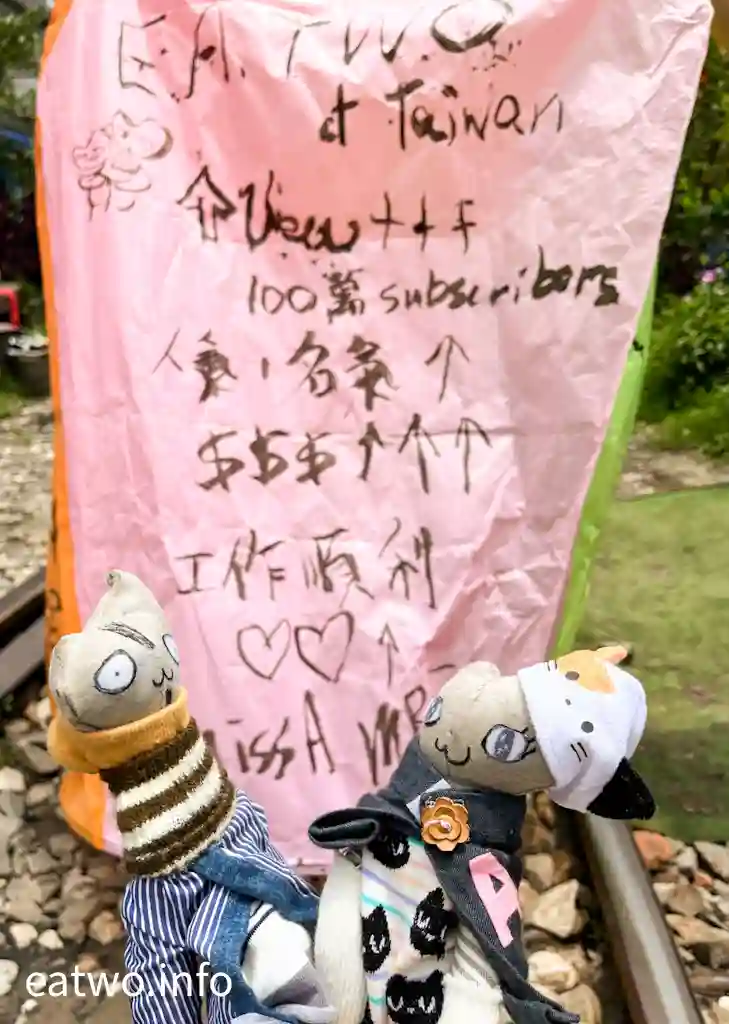 E.A.TWO
at Taiwan
View + + +
100萬 subscribers
人氣，名氣 ↑
$$$↑↑↑
工作順利
♡♡↑
issA MR
A
eatwo.info